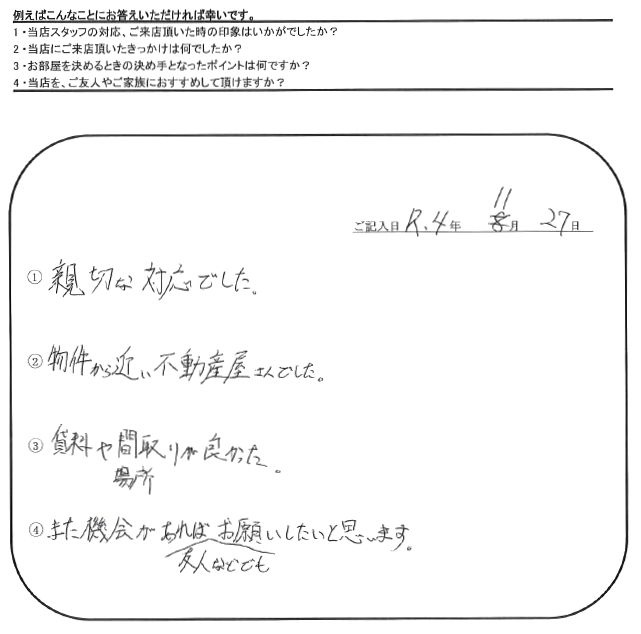 例えばこんなことにお答えいただければ幸いです。
1・当店スタッフの対応、ご来店頂いた時の印象はいかがでしたか?
2・当店にご来店頂いたきっかけは何でしたか?
3・お部屋を決めるときの決め手となったポイントは何ですか?
4・当店を、ご友人やご家族におすすめして頂けますか?
11
ご記入日 R.4年 8月 27日
① 親切な対応でした。
② 物件から近い不動産屋さんでした。
③ 賃料や間取りが良かった。
場所
④ また機会があればお願いしたいと思います。
友人などでも